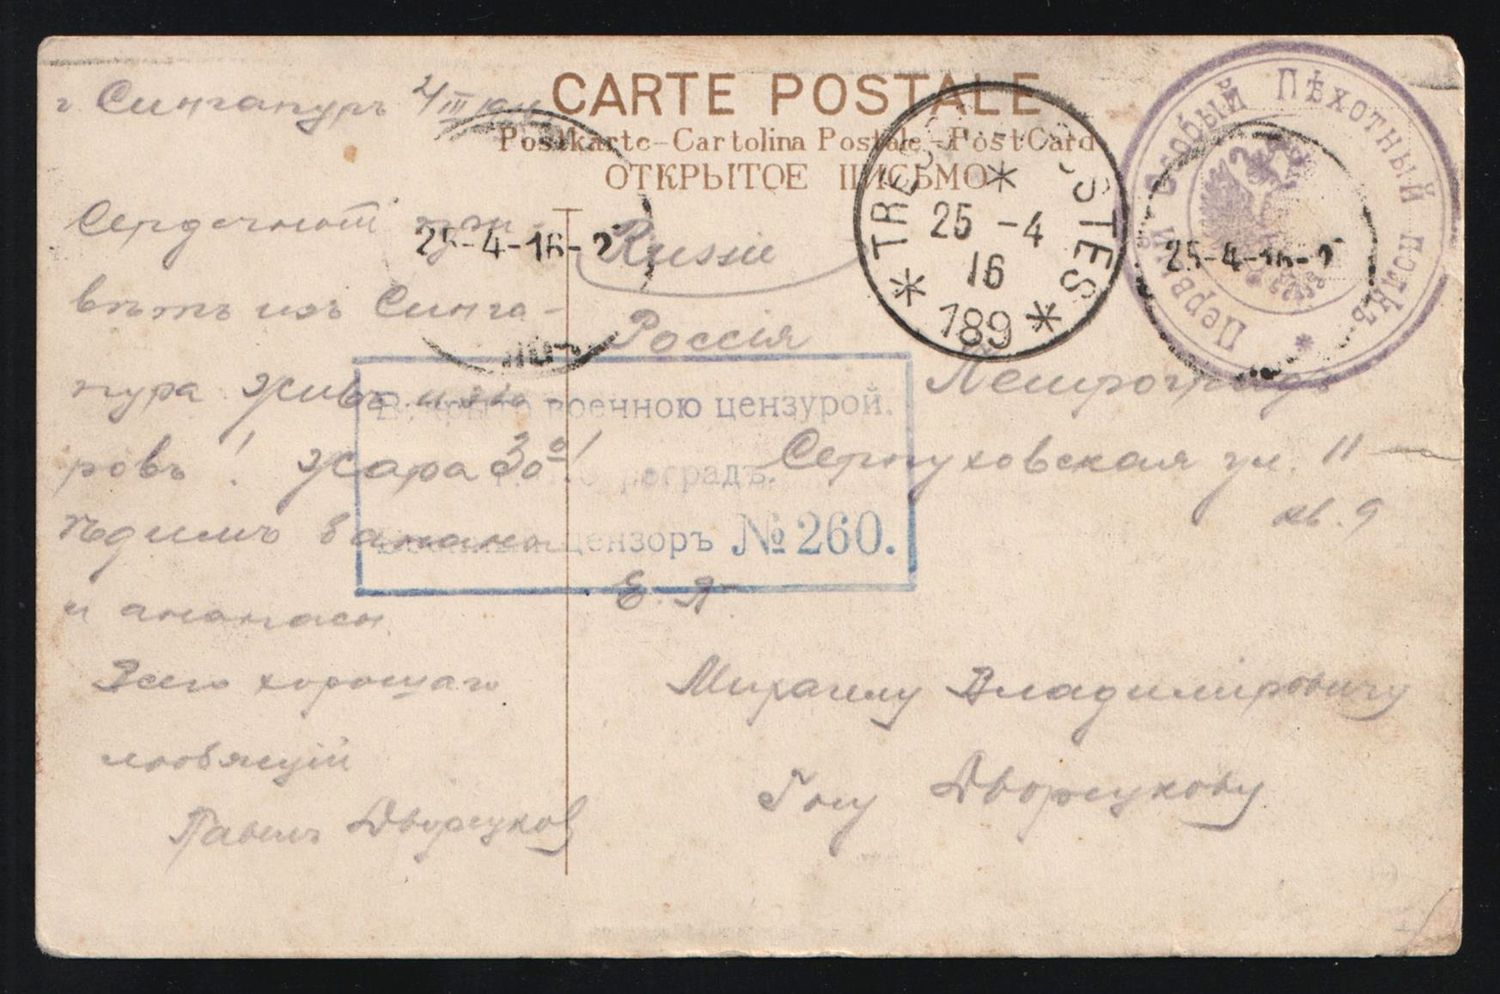 CARTE POSTALE
Postkarte-Cartolina Postale-Post Card
ОТКРЫТОЕ ПИСЬМО
г Сингапуръ 4 III
Сердечный при-
вѣтъ изъ Синга-
пура живъ
ровъ! Жара 30°!
ѣдимъ бананы
и ананасы
Всего хорошаго
любящій
Павелъ Дворжуков
Russie
Россія
Петроградъ
Серпуховская ул. 11
кв. 9
Е. Я.
Михаилу Владиміровичу
Гну Дворжукову
TRESOR POSTES
25 -4
16
189
25-4-16-2
25-4-16-2
Первый Особый Пѣхотный полкъ
Вскрыто военною цензурой.
Петроградъ.
Военный цензоръ № 260.